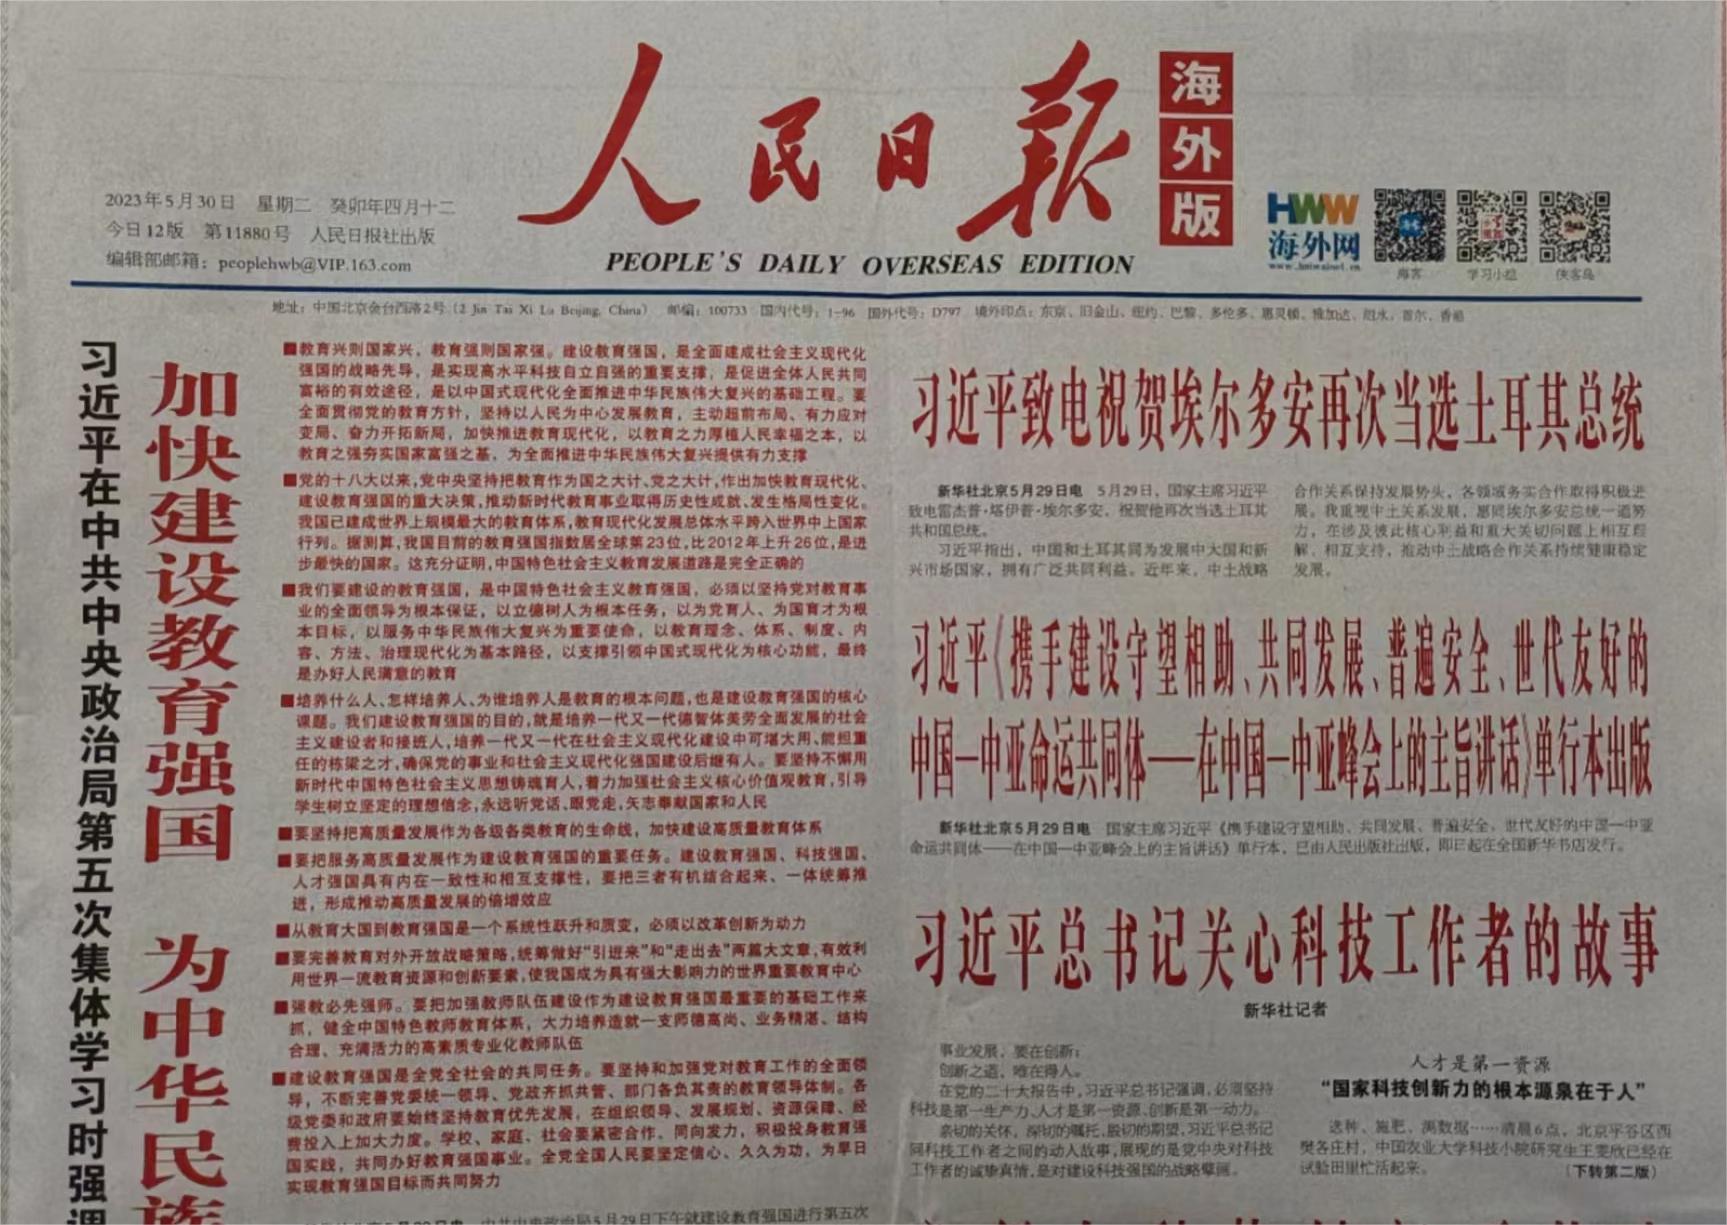 人民日报
海外版
PEOPLE'S DAILY OVERSEAS EDITION
2023年5月30日 星期二 癸卯年四月十二
今日12版 第11880号 人民日报社出版
编辑部邮箱：peoplehwb@VIP.163.com
HWW
海外网
www.haiwainet.cn
海客
学习小组
侠客岛
地址：中国北京金台西路2号（2 Jin Tai Xi Lu Beijing, China） 邮编：100733 国内代号：1-96 国外代号：D797 境外印点：东京、旧金山、纽约、巴黎、多伦多、惠灵顿、雅加达、泗水、首尔、香港
习近平在中共中央政治局第五次集体学习时强调
加快建设教育强国 为中华民族
■教育兴则国家兴，教育强则国家强。建设教育强国，是全面建成社会主义现代化
强国的战略先导，是实现高水平科技自立自强的重要支撑，是促进全体人民共同
富裕的有效途径，是以中国式现代化全面推进中华民族伟大复兴的基础工程。要
全面贯彻党的教育方针，坚持以人民为中心发展教育，主动超前布局、有力应对
变局、奋力开拓新局，加快推进教育现代化，以教育之力厚植人民幸福之本，以
教育之强夯实国家富强之基，为全面推进中华民族伟大复兴提供有力支撑
■党的十八大以来，党中央坚持把教育作为国之大计、党之大计，作出加快教育现代化、
建设教育强国的重大决策，推动新时代教育事业取得历史性成就、发生格局性变化。
我国已建成世界上规模最大的教育体系，教育现代化发展总体水平跨入世界中上国家
行列。据测算，我国目前的教育强国指数居全球第23位，比2012年上升26位，是进
步最快的国家。这充分证明，中国特色社会主义教育发展道路是完全正确的
■我们要建设的教育强国，是中国特色社会主义教育强国，必须以坚持党对教育事
业的全面领导为根本保证，以立德树人为根本任务，以为党育人、为国育才为根
本目标，以服务中华民族伟大复兴为重要使命，以教育理念、体系、制度、内
容、方法、治理现代化为基本路径，以支撑引领中国式现代化为核心功能，最终
是办好人民满意的教育
■培养什么人、怎样培养人、为谁培养人是教育的根本问题，也是建设教育强国的核心
课题。我们建设教育强国的目的，就是培养一代又一代德智体美劳全面发展的社会
主义建设者和接班人，培养一代又一代在社会主义现代化建设中可堪大用、能担重
任的栋梁之才，确保党的事业和社会主义现代化强国建设后继有人。要坚持不懈用
新时代中国特色社会主义思想铸魂育人，着力加强社会主义核心价值观教育，引导
学生树立坚定的理想信念，永远听党话、跟党走，矢志奉献国家和人民
■要坚持把高质量发展作为各级各类教育的生命线，加快建设高质量教育体系
■要把服务高质量发展作为建设教育强国的重要任务。建设教育强国、科技强国、
人才强国具有内在一致性和相互支撑性，要把三者有机结合起来、一体统筹推
进，形成推动高质量发展的倍增效应
■从教育大国到教育强国是一个系统性跃升和质变，必须以改革创新为动力
■要完善教育对外开放战略策略，统筹做好“引进来”和“走出去”两篇大文章，有效利
用世界一流教育资源和创新要素，使我国成为具有强大影响力的世界重要教育中心
■强教必先强师。要把加强教师队伍建设作为建设教育强国最重要的基础工作来
抓，健全中国特色教师教育体系，大力培养造就一支师德高尚、业务精湛、结构
合理、充满活力的高素质专业化教师队伍
■建设教育强国是全党全社会的共同任务。要坚持和加强党对教育工作的全面领
导，不断完善党委统一领导、党政齐抓共管、部门各负其责的教育领导体制。各
级党委和政府要始终坚持教育优先发展，在组织领导、发展规划、资源保障、经
费投入上加大力度。学校、家庭、社会要紧密合作、同向发力，积极投身教育强
国实践，共同办好教育强国事业。全党全国人民要坚定信心、久久为功，为早日
实现教育强国目标而共同努力
中共中央政治局5月29日下午就建设教育强国进行第五次
习近平致电祝贺埃尔多安再次当选土耳其总统
新华社北京5月29日电 5月29日，国家主席习近平
致电雷杰普·塔伊普·埃尔多安，祝贺他再次当选土耳其
共和国总统。
习近平指出，中国和土耳其同为发展中大国和新
兴市场国家，拥有广泛共同利益。近年来，中土战略
合作关系保持发展势头，各领域务实合作取得积极进
展。我重视中土关系发展，愿同埃尔多安总统一道努
力，在涉及彼此核心利益和重大关切问题上相互理
解、相互支持，推动中土战略合作关系持续健康稳定
发展。
习近平《携手建设守望相助、共同发展、普遍安全、世代友好的
中国—中亚命运共同体——在中国—中亚峰会上的主旨讲话》单行本出版
新华社北京5月29日电 国家主席习近平《携手建设守望相助、共同发展、普遍安全、世代友好的中国—中亚
命运共同体——在中国—中亚峰会上的主旨讲话》单行本，已由人民出版社出版，即日起在全国新华书店发行。
习近平总书记关心科技工作者的故事
新华社记者
事业发展，要在创新；
创新之道，唯在得人。
在党的二十大报告中，习近平总书记强调，必须坚持
科技是第一生产力、人才是第一资源、创新是第一动力。
亲切的关怀，深切的嘱托，殷切的期望，习近平总书记
同科技工作者之间的动人故事，展现的是党中央对科技
工作者的诚挚真情，是对建设科技强国的战略擘画。
人才是第一资源
“国家科技创新力的根本源泉在于人”
选种、施肥、测数据……清晨6点，北京平谷区西
樊各庄村，中国农业大学科技小院研究生王雯欣已经在
试验田里忙活起来。
（下转第二版）